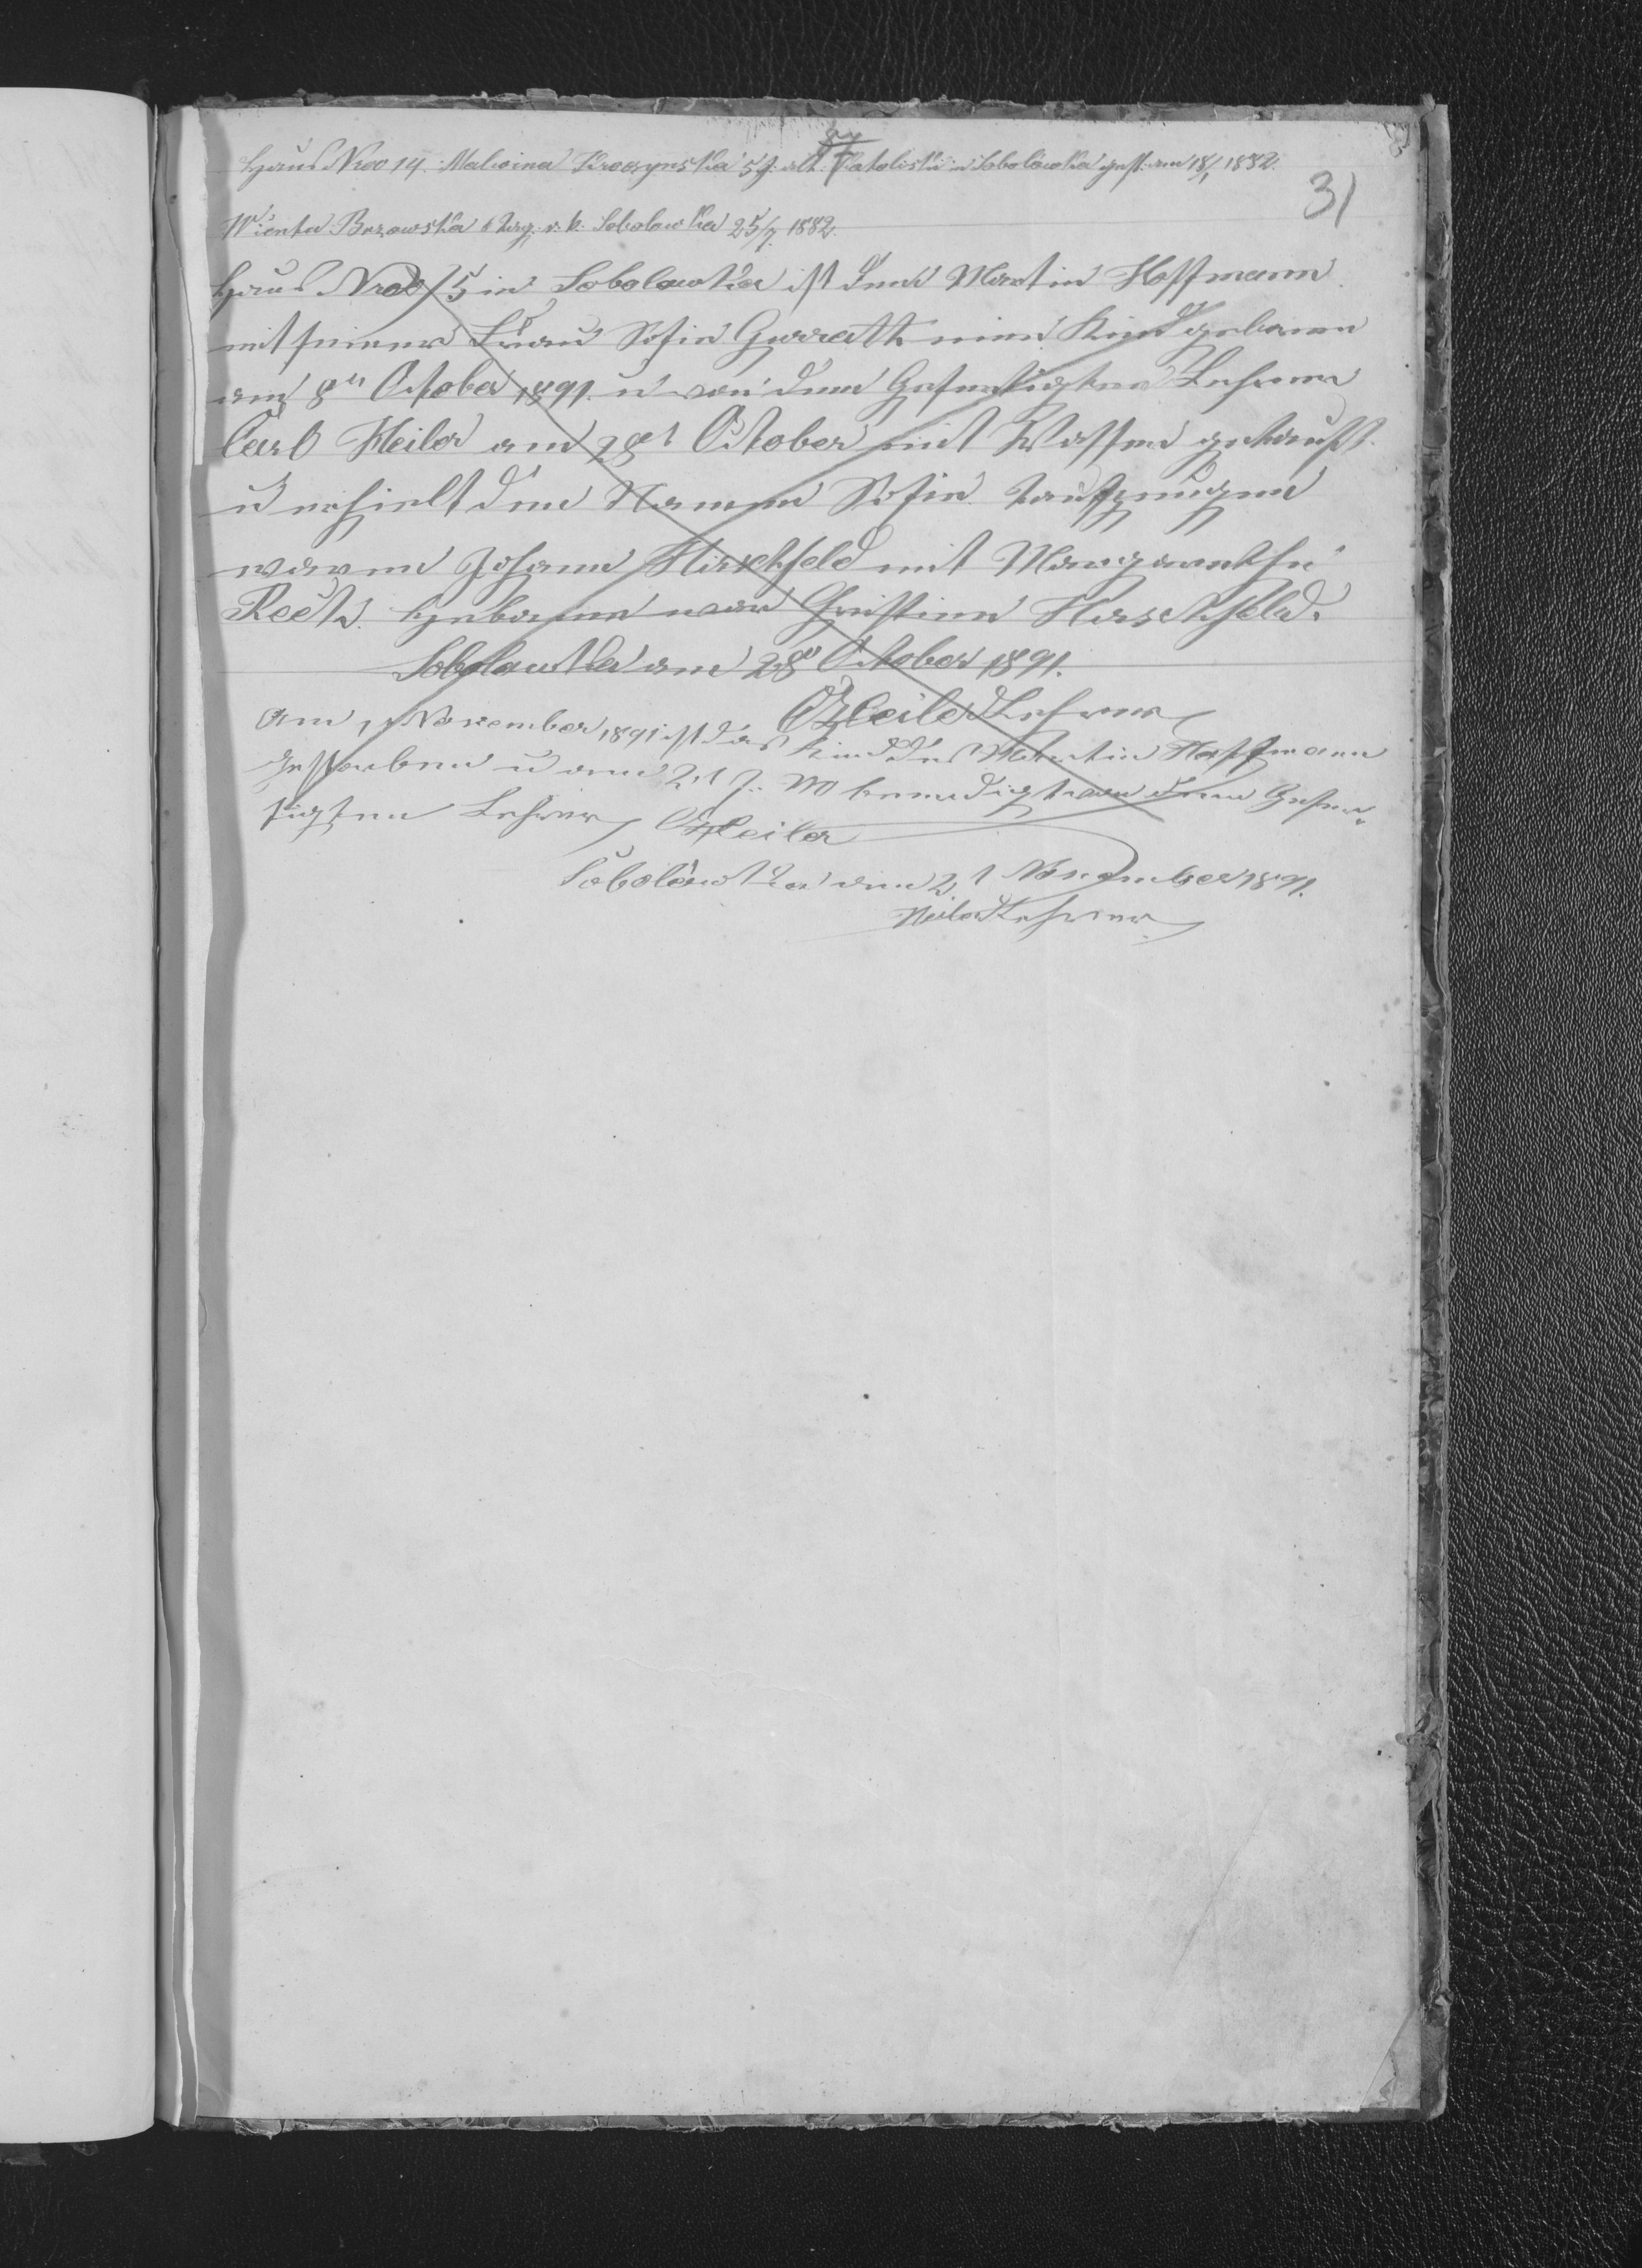 31
Haus Nro 14. Malwina Kroczynska 5 J. alt. Katolisch in Sobolówka gest. am 18/1 1882.
Wienta Brzowska 6 Tag. r. k. Sobolowka 25/7. 1882.
Haus Nro 15 in Sobolowka ist dem Martin Hoffmann
mit seiner Frau Sofie Gerrath ein Kind geboren
am 8ten October 1891. u von dem Gefertigten Lehrer
Carl Heiler am 28ten October mit Wasser getauft
u erhielt den Namen Sofie. Taufzeugen
waren Johann Hirschfeld mit Margarethe
Reetz. Hebamme war Christine Hirschfeld.
Sobolowka am 28 October 1891.
CHeiler Lehrer
Am 1 November 1891 ist das Kind des Martin Hoffmann
gestorben u am 2t J. M beerdigt von dem Gefer-
tigten Lehrer CHeiler
Sobolówka am 2t November 1891.
Heiler Lehrer